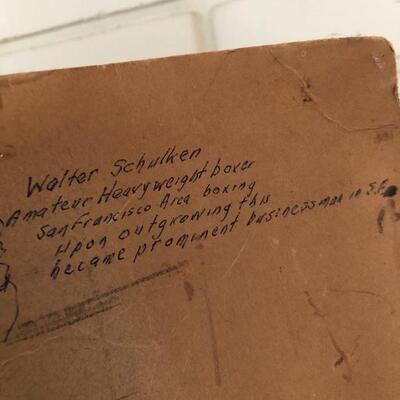 Walter Schulken
Amateur Heavyweight boxer
San Francisco Area boxing
Upon outgrowing this
became prominent businessman in S.F.